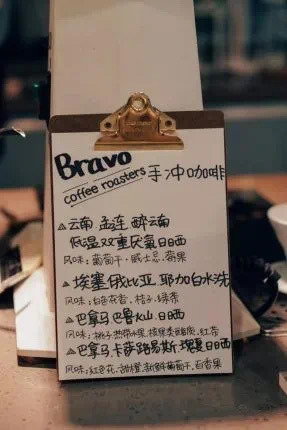 Bravo
coffee roasters 手冲咖啡
云南 孟连 醉云南
低温双重厌氧日晒
风味:葡萄干·威士忌·莓果
埃塞俄比亚 耶加白水洗
风味:白色花香、桔子、绿茶
巴拿马 巴鲁火山 日晒
风味:桃子·热带水果·红茶
巴拿马 卡萨路易斯·瑰夏日晒
风味:红色花、甜橙、新鲜葡萄干、百香果